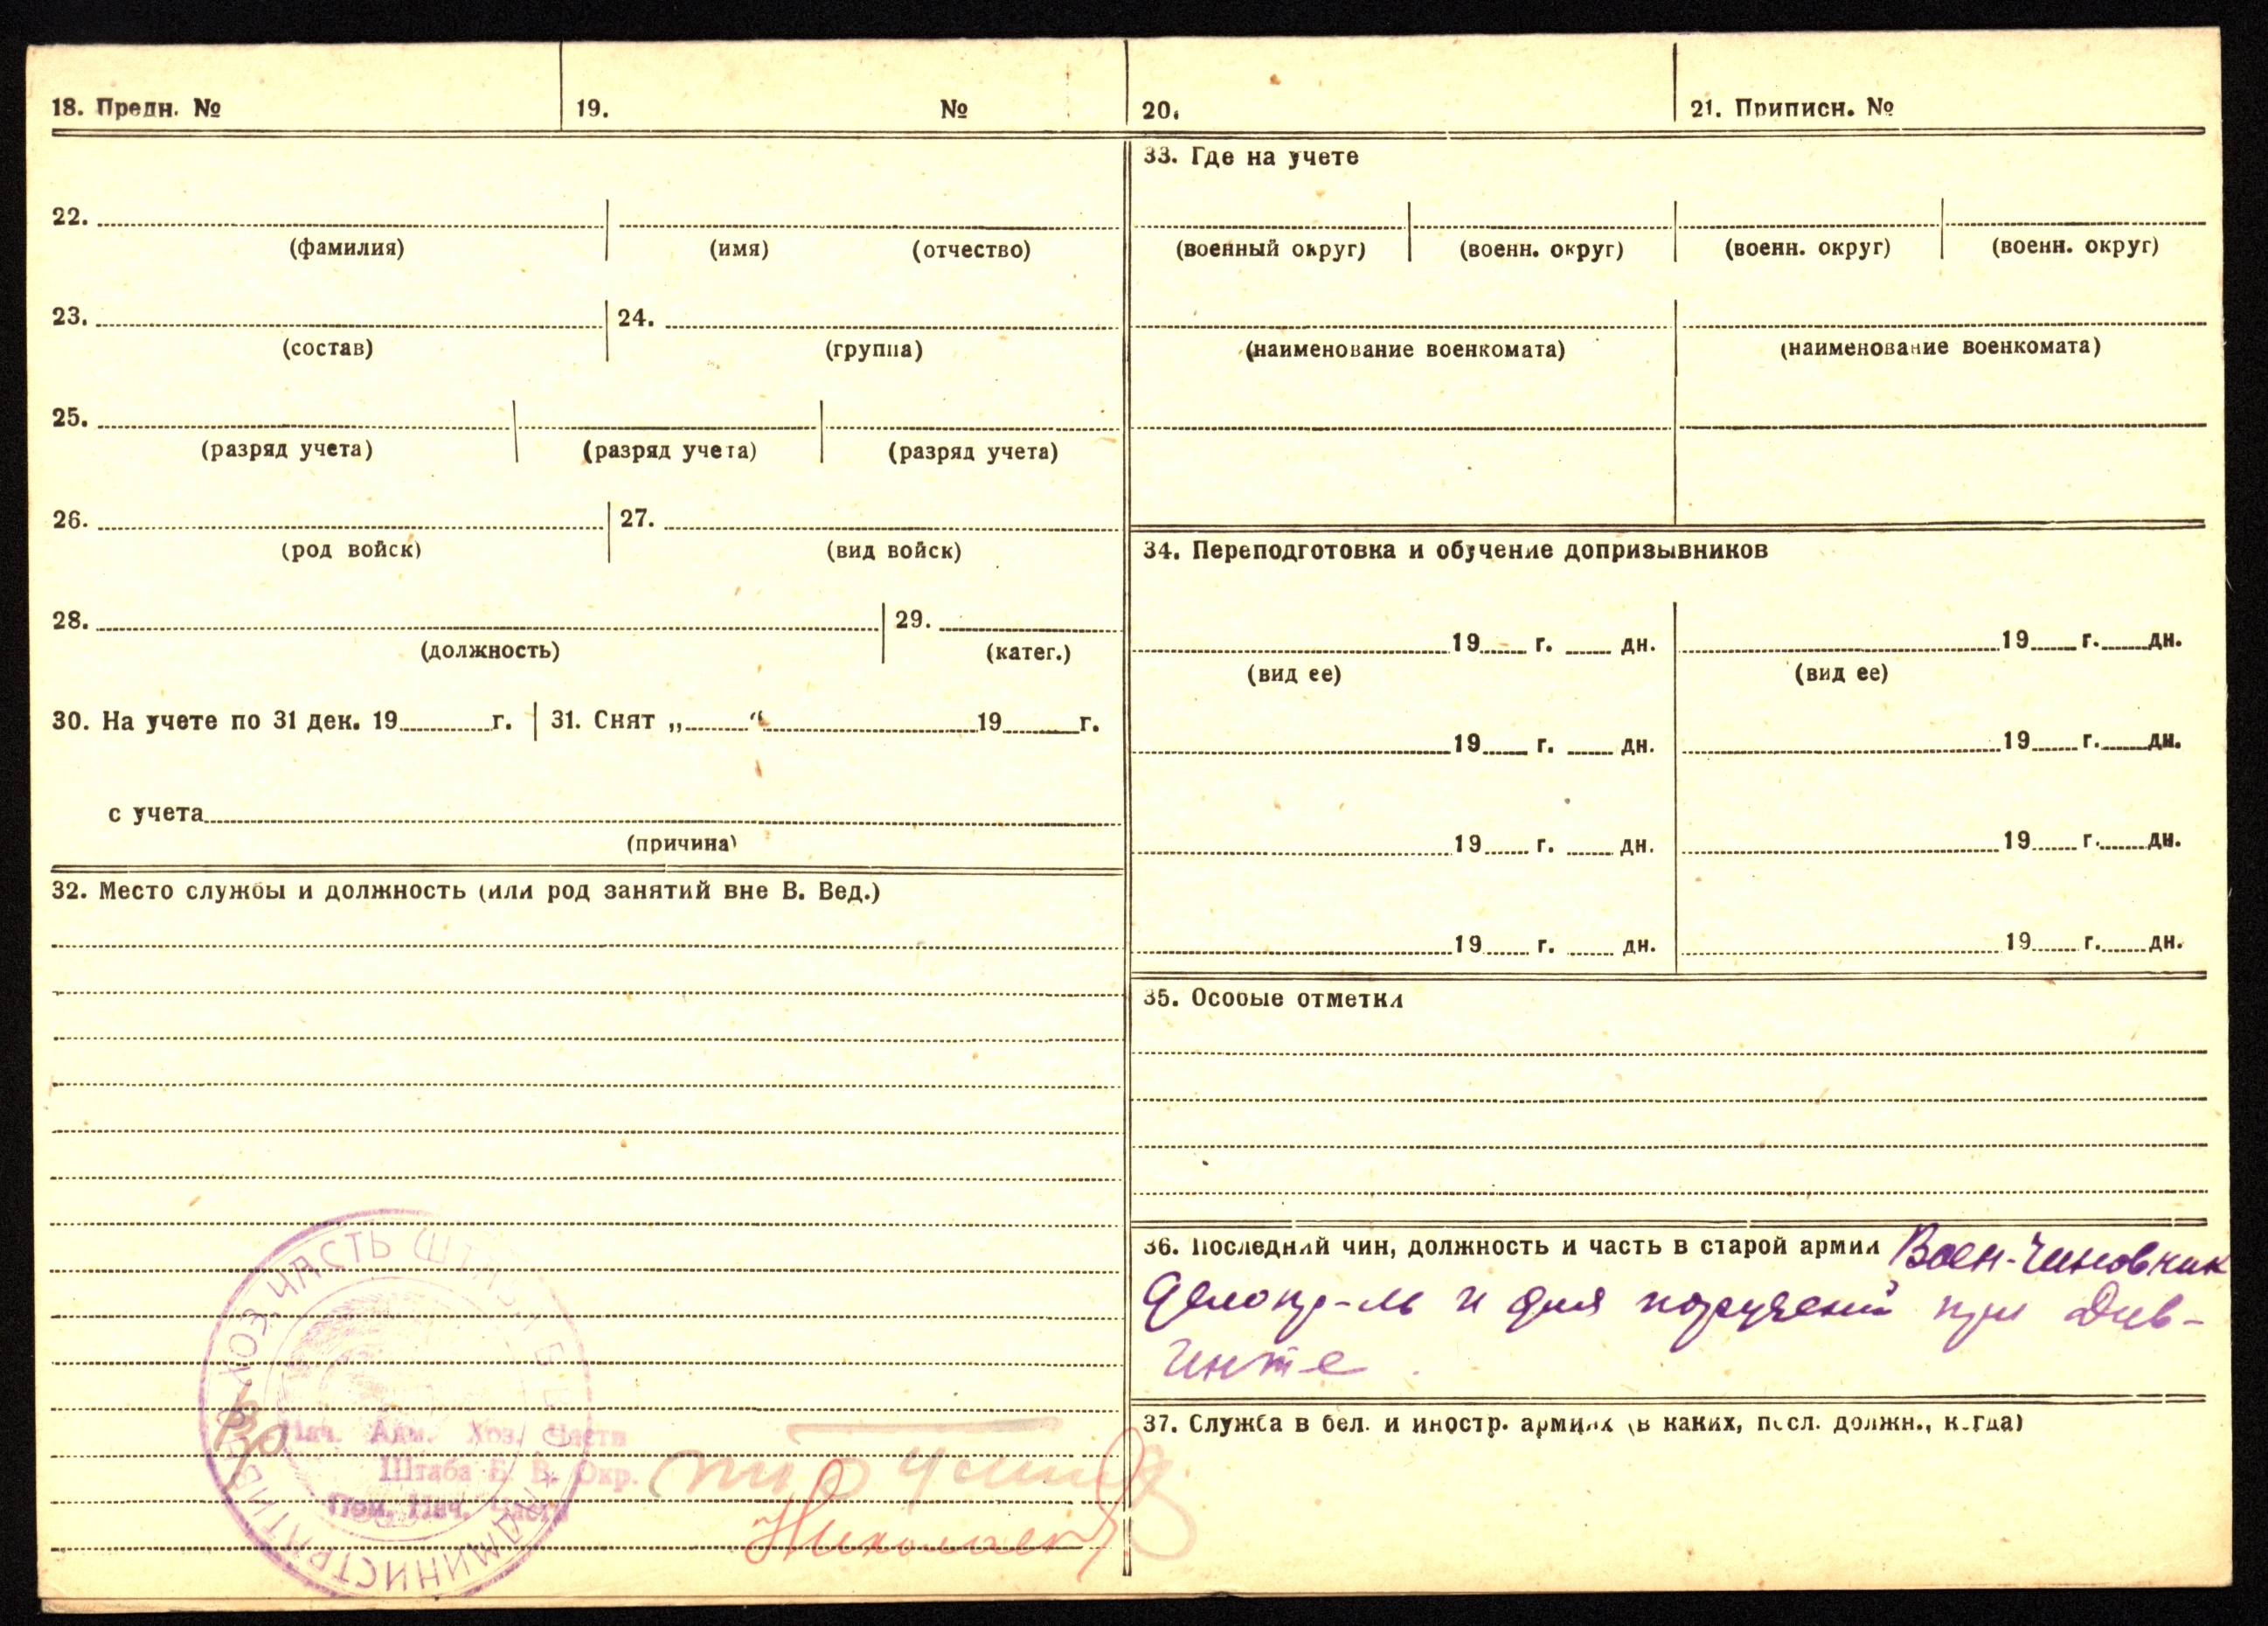 18. Предн. №
19. №
20.
21. Приписн. №
22.
(фамилия) (имя) (отчество)
23. 24.
(состав) (группа)
25.
(разряд учета) (разряд учета) (разряд учета)
26. 27.
(род войск) (вид войск)
28. 29.
(должность) (катег.)
30. На учете по 31 дек. 19 г. 31. Снят „ “ 19 г.
с учета
(причина)
32. Место службы и должность (или род занятий вне В. Вед.)
ХОЗ ЧАСТЬ ШТАБ
АДМИНИСТРАТИВ
Нач. Адм. Хоз. Части
Штаба Б. В. Окр.
Пом. Нач. Части
33. Где на учете
(военный округ) (военн. округ) (военн. округ) (военн. округ)
(наименование военкомата) (наименование военкомата)
34. Переподготовка и обучение допризывников
19 г. дн. 19 г. дн.
(вид ее) (вид ее)
19 г. дн. 19 г. дн.
19 г. дн. 19 г. дн.
19 г. дн. 19 г. дн.
35. Особые отметки
36. Последний чин, должность и часть в старой армии Воен-чиновник
Делопр-ль и для поручений при Див-
Инте.
37. Служба в бел. и иностр. армиях (в каких, посл. должн., когда)